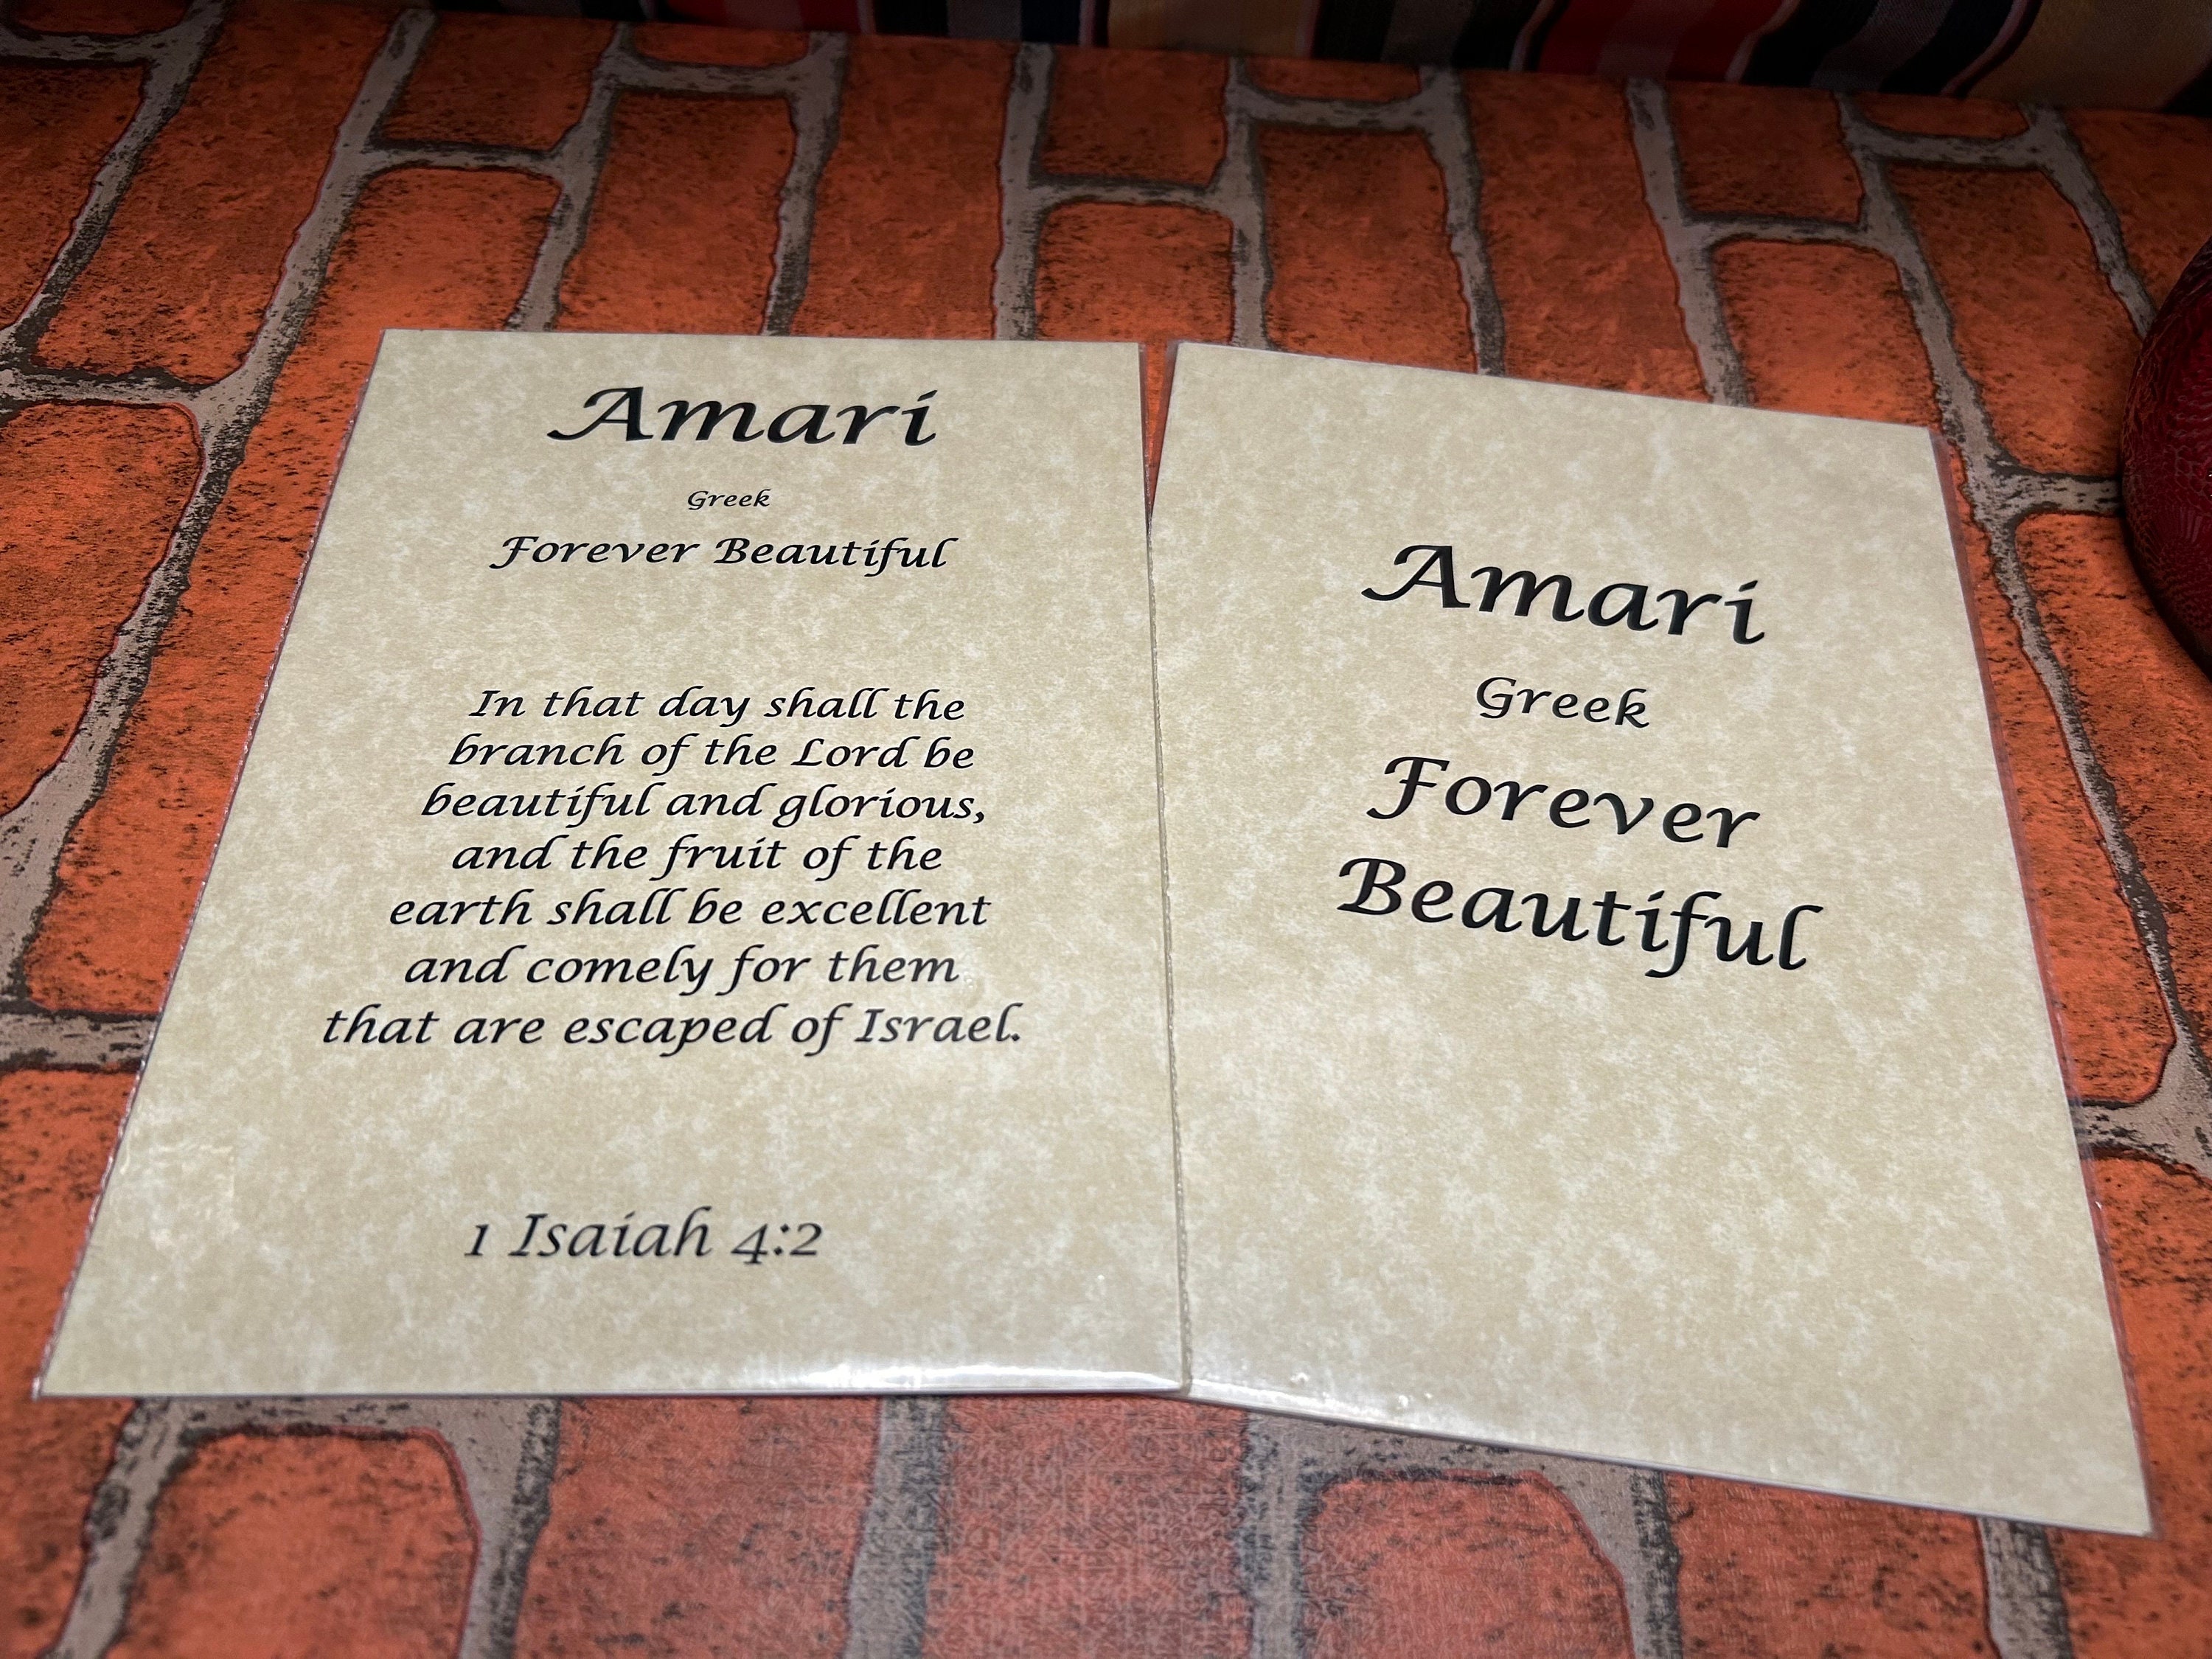 Amari
Greek
Forever Beautiful
In that day shall the
branch of the Lord be
beautiful and glorious,
and the fruit of the
earth shall be excellent
and comely for them
that are escaped of Israel.
1 Isaiah 4:2
Amari
Greek
Forever
Beautiful